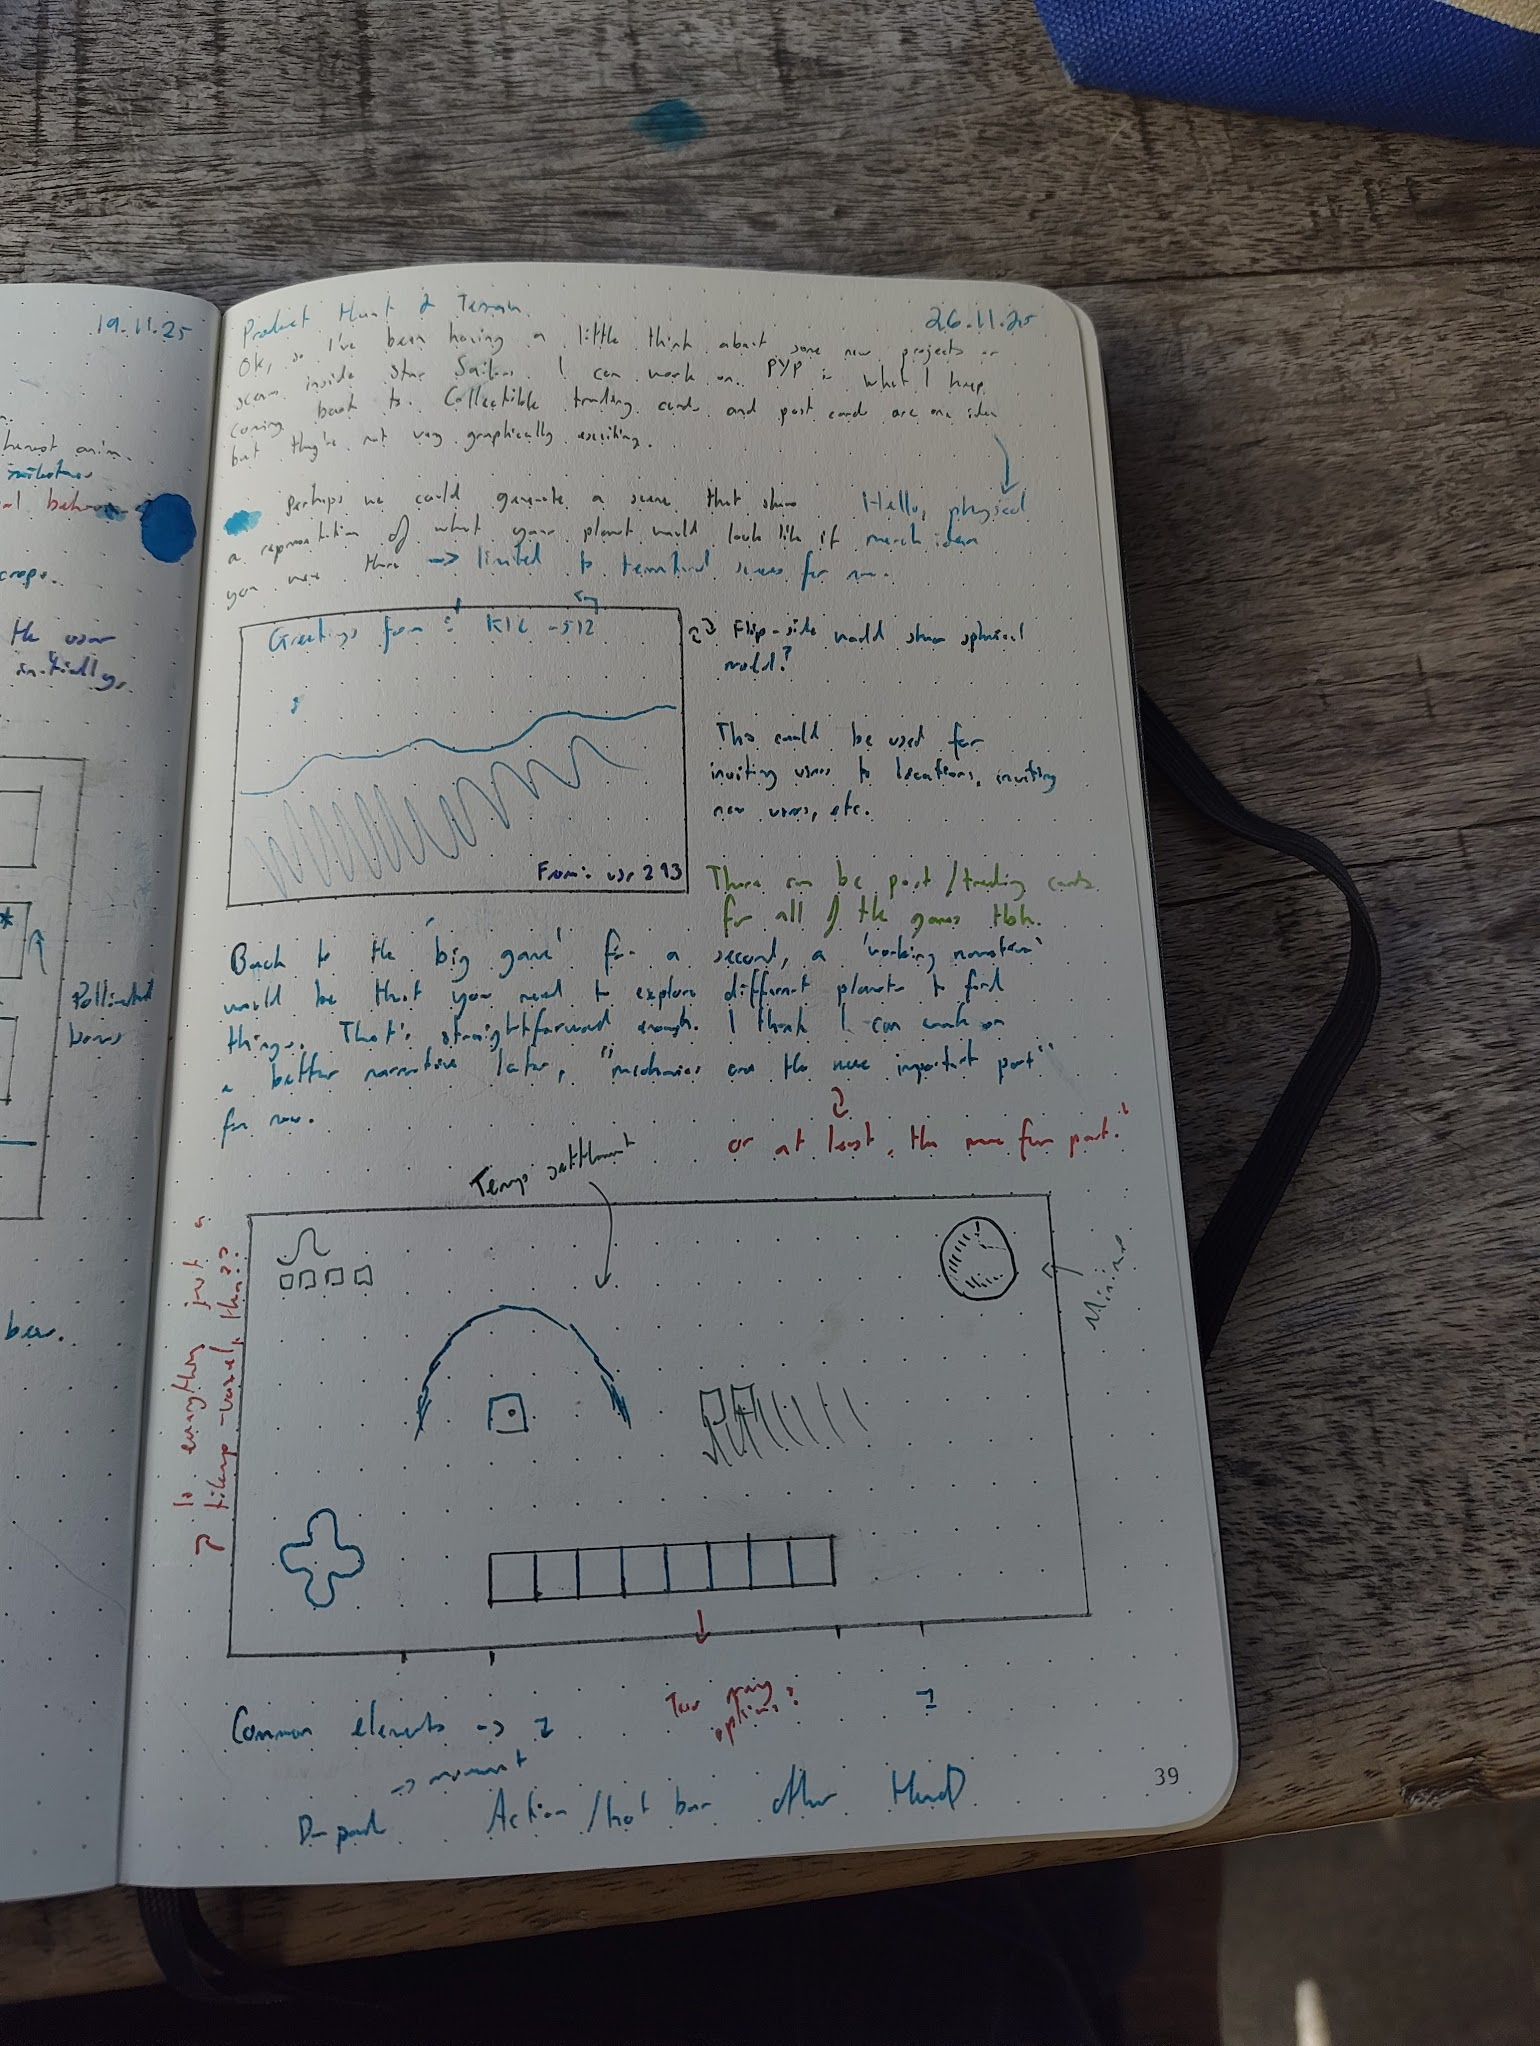 19.11.25
crops.
the user
initially.
*
Pollinated
bens
bee.
Product Hunt & Terrain
26.11.25
Ok, so I've been having a little think about some new projects or
inside Star Sailors I can work on. PYP is what I keep
coming back to. Collectible trading cards and post cards are one idea
but they're not very graphically exciting.
Perhaps we could generate a scene that shows
a representation of what your planet would look like if
you were there -> limited to terrestrial scenes for now.
Hello, physical
merch idea
Greetings from: KIC -512
From: usr 293
Flip-side would show spherical
model?
This could be used for
inviting users to locations, inviting
new users, etc.
There can be post/trading cards
for all of the games tbh.
Back to the 'big game' for a second, a 'working narrative'
would be that you need to explore different planets to find
things. That's straightforward enough. I think I can work on
a better narrative later, "mechanics are the more important part"
for now.
or at least, the more fun part."
Temp settlement
Is everything just a
tilemap -voxel, then??
Too many
options?
Common elements ->
-> movement
D-pad
Action/hot bar
other HUD
39